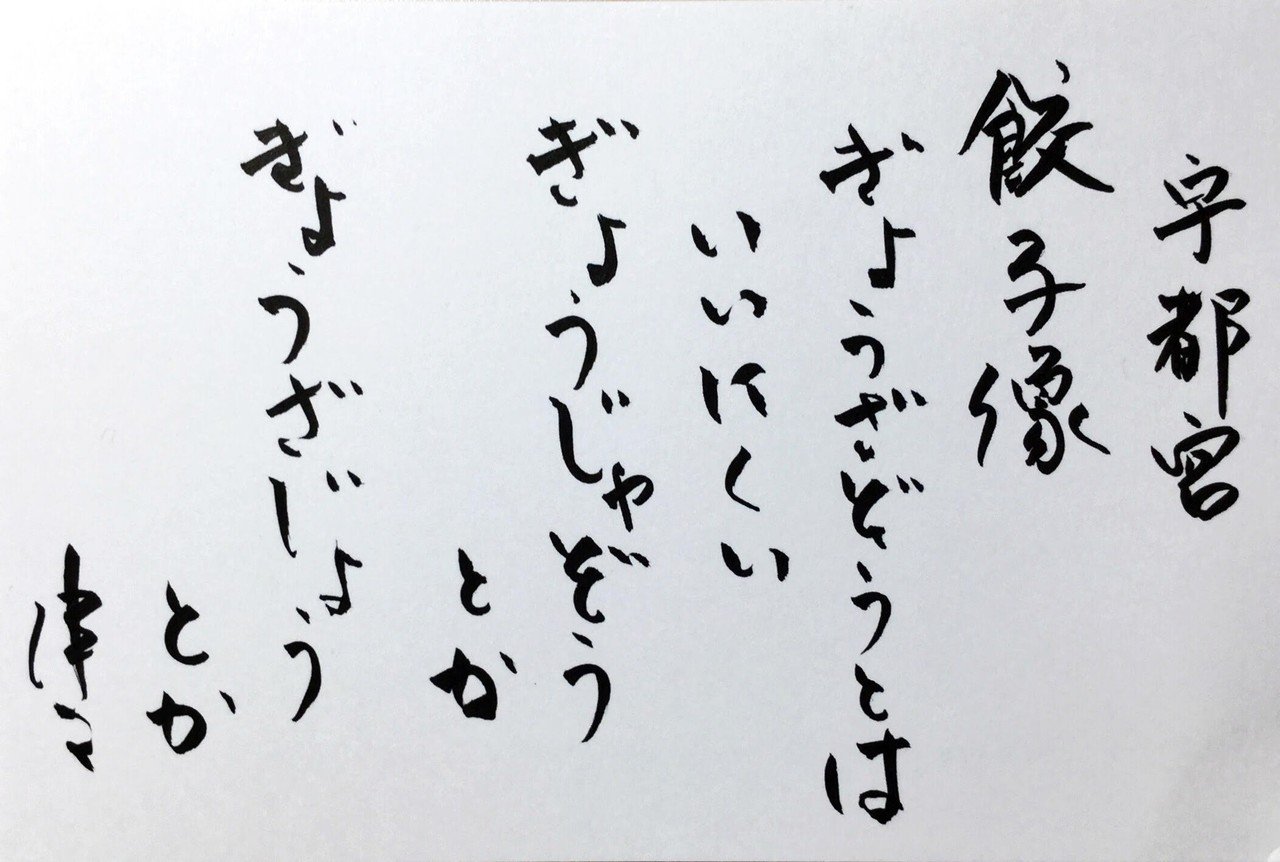 宇都宮
餃子像
ぎょうざぞうとは
いいにくい
ぎょうじゃぞう
とか
ぎょうざじょう
とか
津